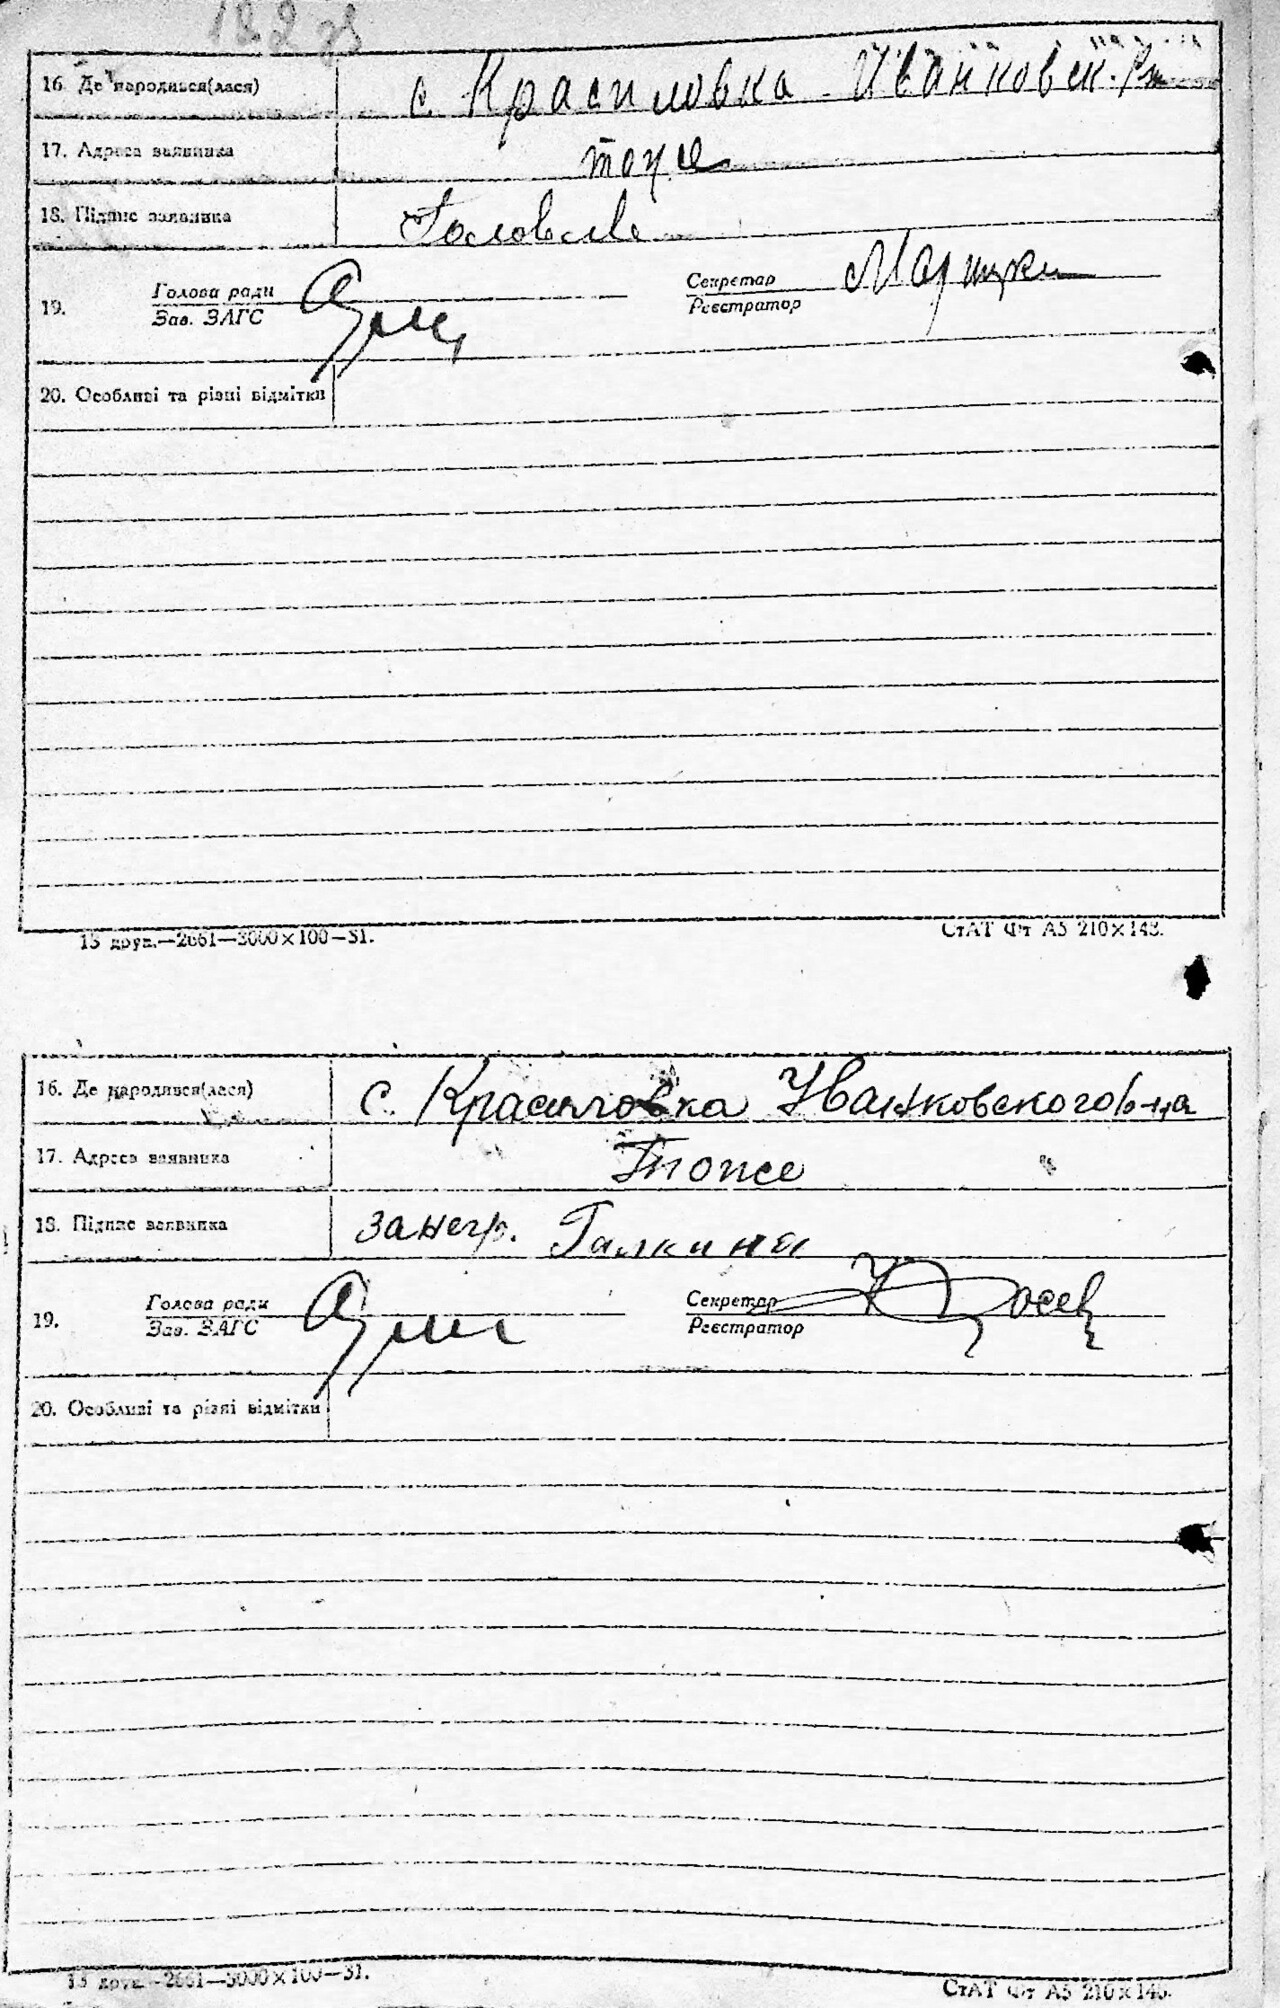 182 зв
16. Де народився(лася) с. Красиловка Иванковск. Р-н
17. Адреса заявника тоже
18. Підпис заявника
19. Голова ради Секретар
Зав. ЗАГС Реєстратор
20. Особливі та різні відмітки
13 друк.—2661—3000×100—31.
СтАТ Фт А5 210×148.
16. Де народився(лася) с. Красиловка Иванковского р-на
17. Адреса заявника Тоже
18. Підпис заявника за негр. Галкина
19. Голова ради Секретар
Зав. ЗАГС Реєстратор
20. Особливі та різні відмітки
13 друк.—2661—3000×100—31.
СтАТ Фт А5 210×148.